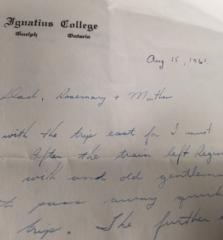 Ignatius College
Guelph Ontario
Aug 15, 1961
Dad, Rosemary & Mother
with the trip east for I must
After the train left Regina
with and old gentleman
pass away
trip. The further